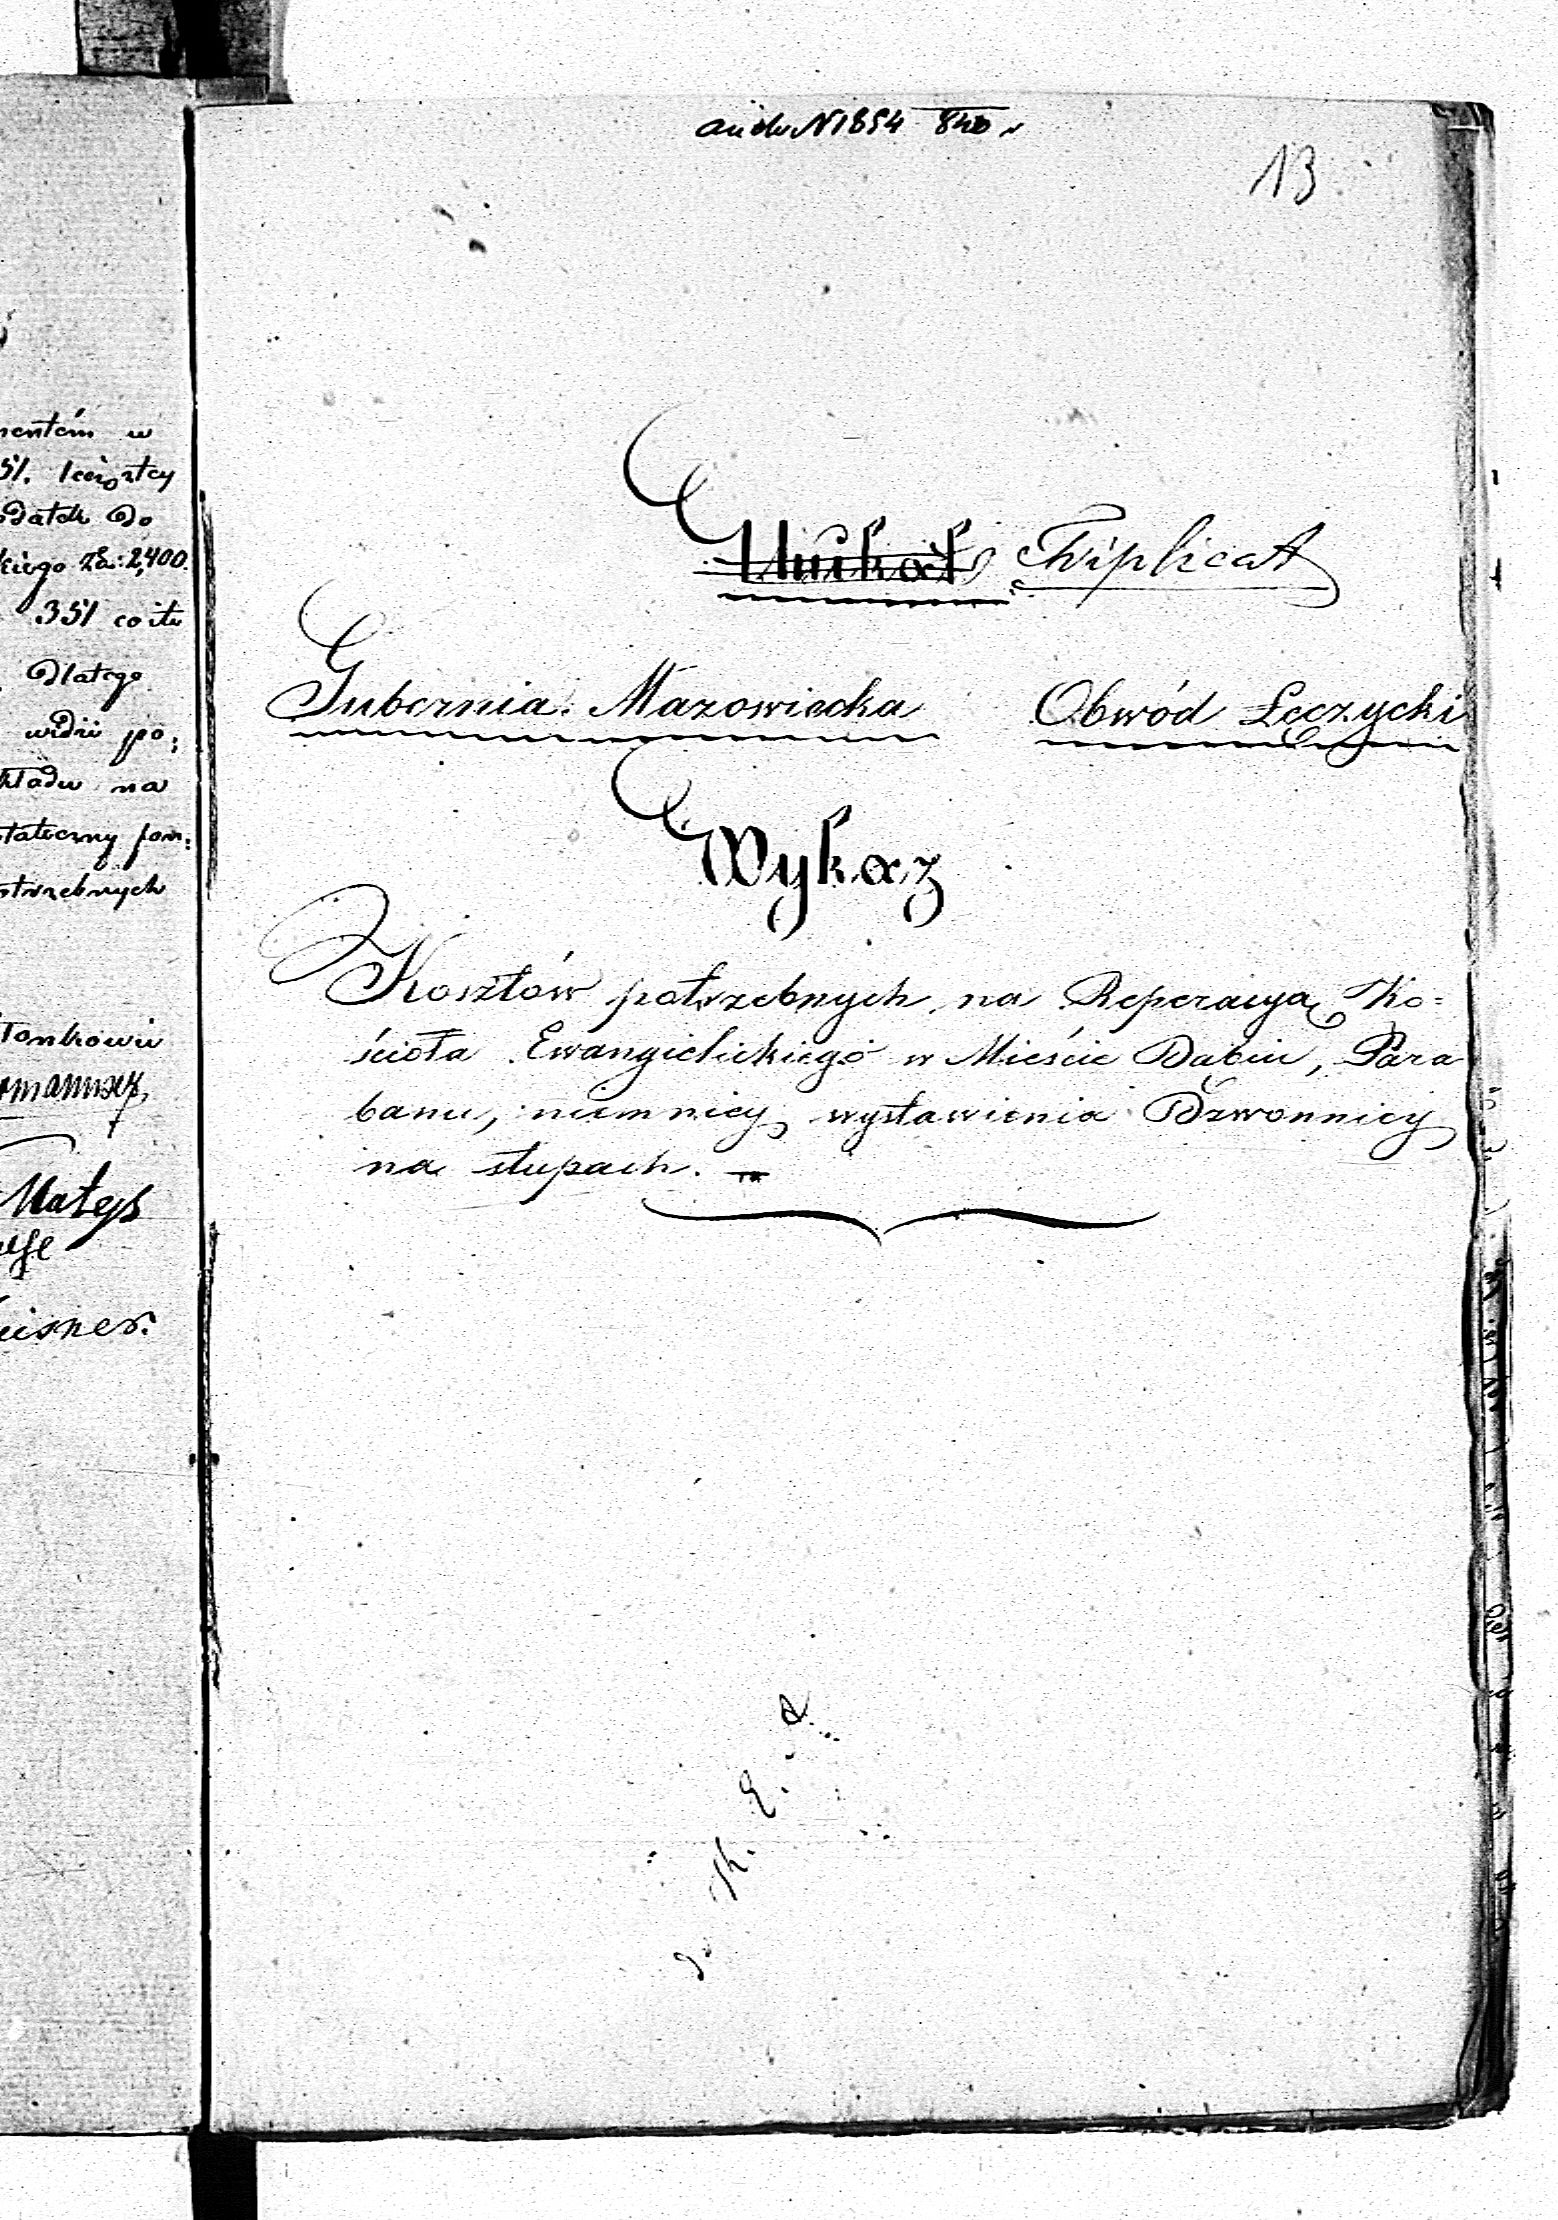 mentém w
51. 
datek do
kiego zł: 2,400.
351 co itu
dlatego
widzi po;
kładu na
stateczny fon:
otrzebnych
łonkowie
Matys
N 1854 840
13
Unikat Triplicat
Gubernia Mazowiecka Obwód Łęczycki
Wykaz
Kosztów potrzebnych na Reperacyą Ko=
ścioła Ewangielickiego w Mieście Dąbiu, Para
banu, niemniey wystawienia Dzwonnicy
na słupach.